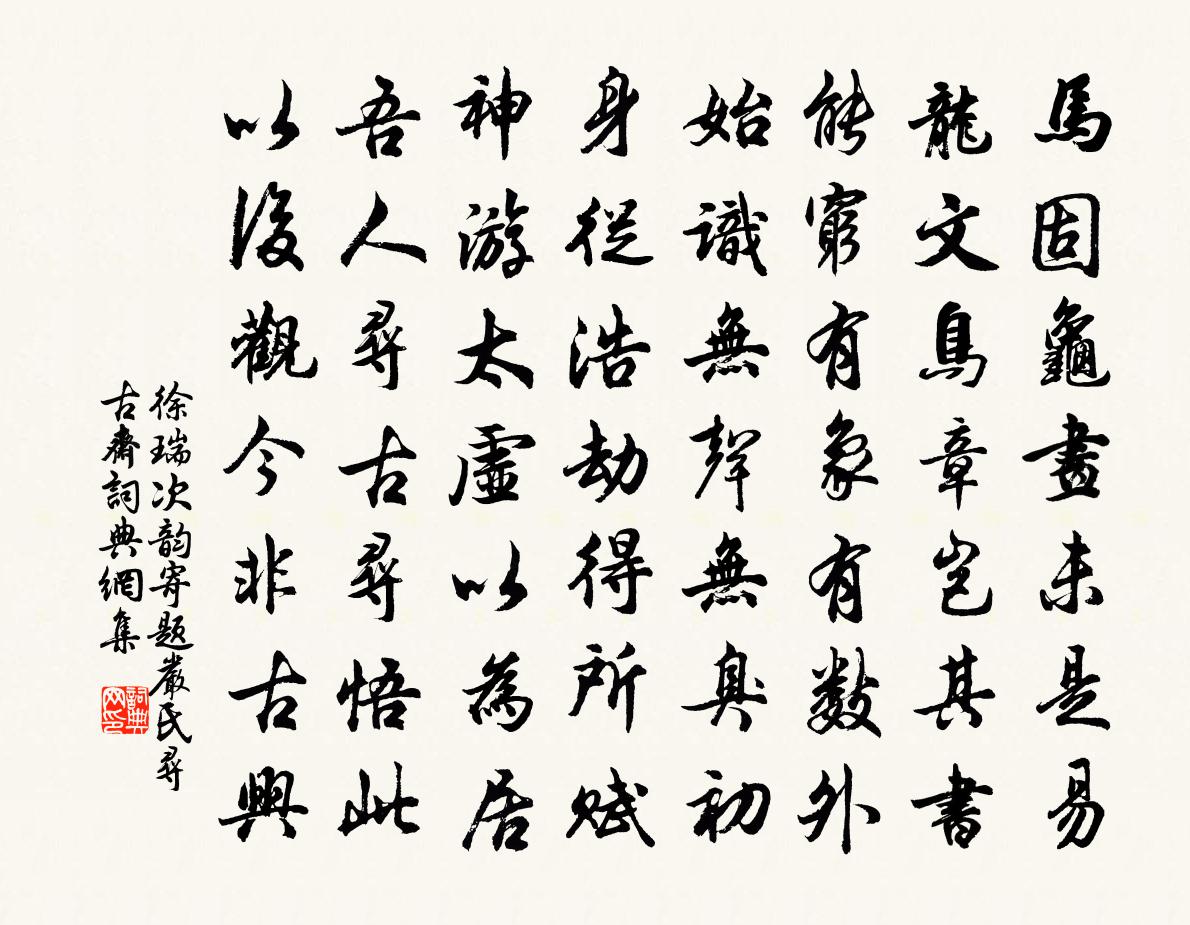 馬固龜畫未是易
龍文鳥章豈其書
能窮有象有數外
始識無聲無臭初
身從浩劫得所賦
神游太虛以為居
吾人尋古尋悟此
以後觀今非古輿
徐瑞次韵寄题嚴氏尋
古齋詞典網集
詞典网印